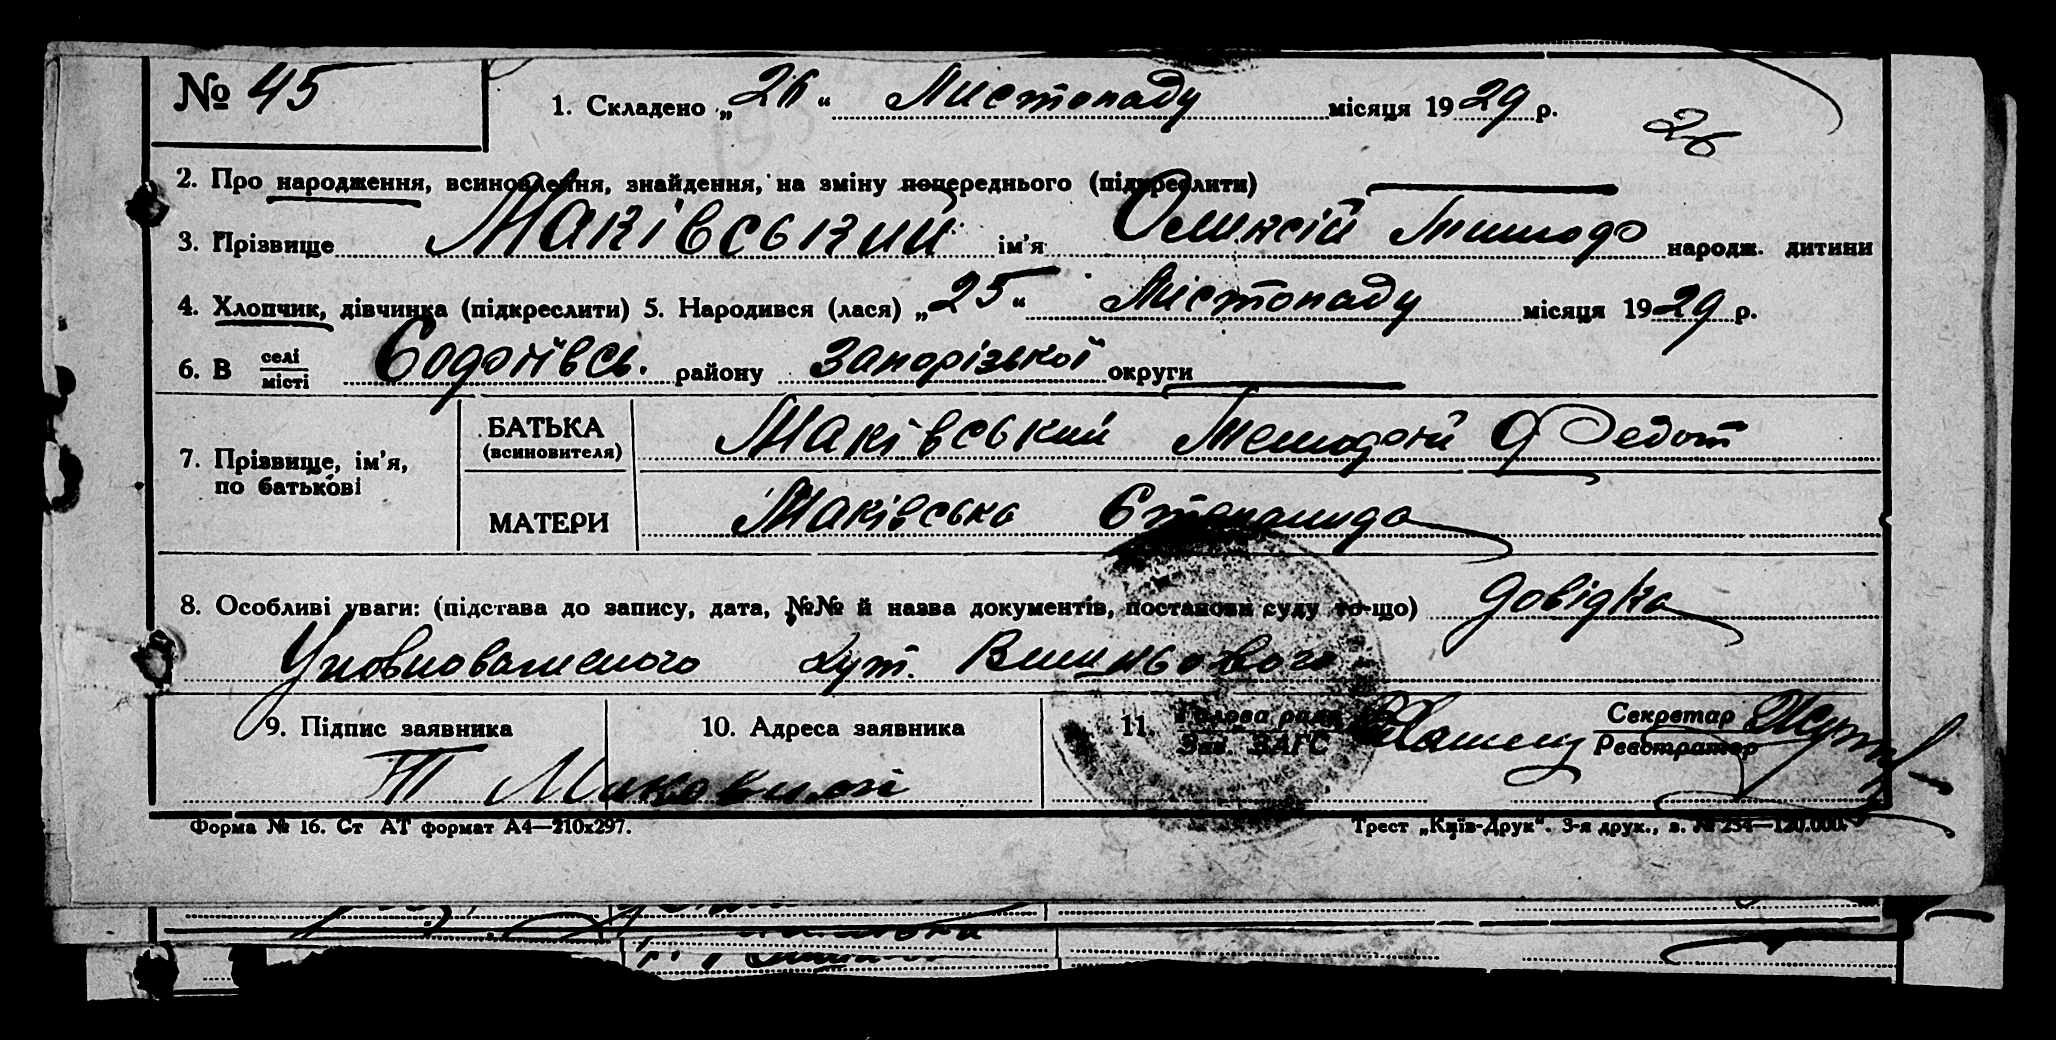 № 45
1. Складено „26“ Листопаду місяця 1929 р.
26
2. Про народження, всиновлення, знайдення, на зміну попереднього (підкреслити)
3. Прізвище Маківський ім'я Оликсій Тимодо народж. дитини
4. Хлопчик, дівчинка (підкреслити) 5. Народився (лася) „25“ Листопаду місяця 1929 р.
6. В селі місті району Запорізької округи
7. Прізвище, ім'я, по батькові
БАТЬКА (всиновителя) Маківський Федот
МАТЕРИ Маківська Степанида
8. Особливі уваги: (підстава до запису, дата, №№ й назва документів, постанови суду то-що) довідка
Уповноваженого хут.
9. Підпис заявника
10. Адреса заявника
11. Голова ради Зав. ЗАГС Секретар Реєстратор
Форма № 16. Ст АТ формат А4—210х297.
Трест „Київ-Друк“. 3-я друк., з. № 254—120.000